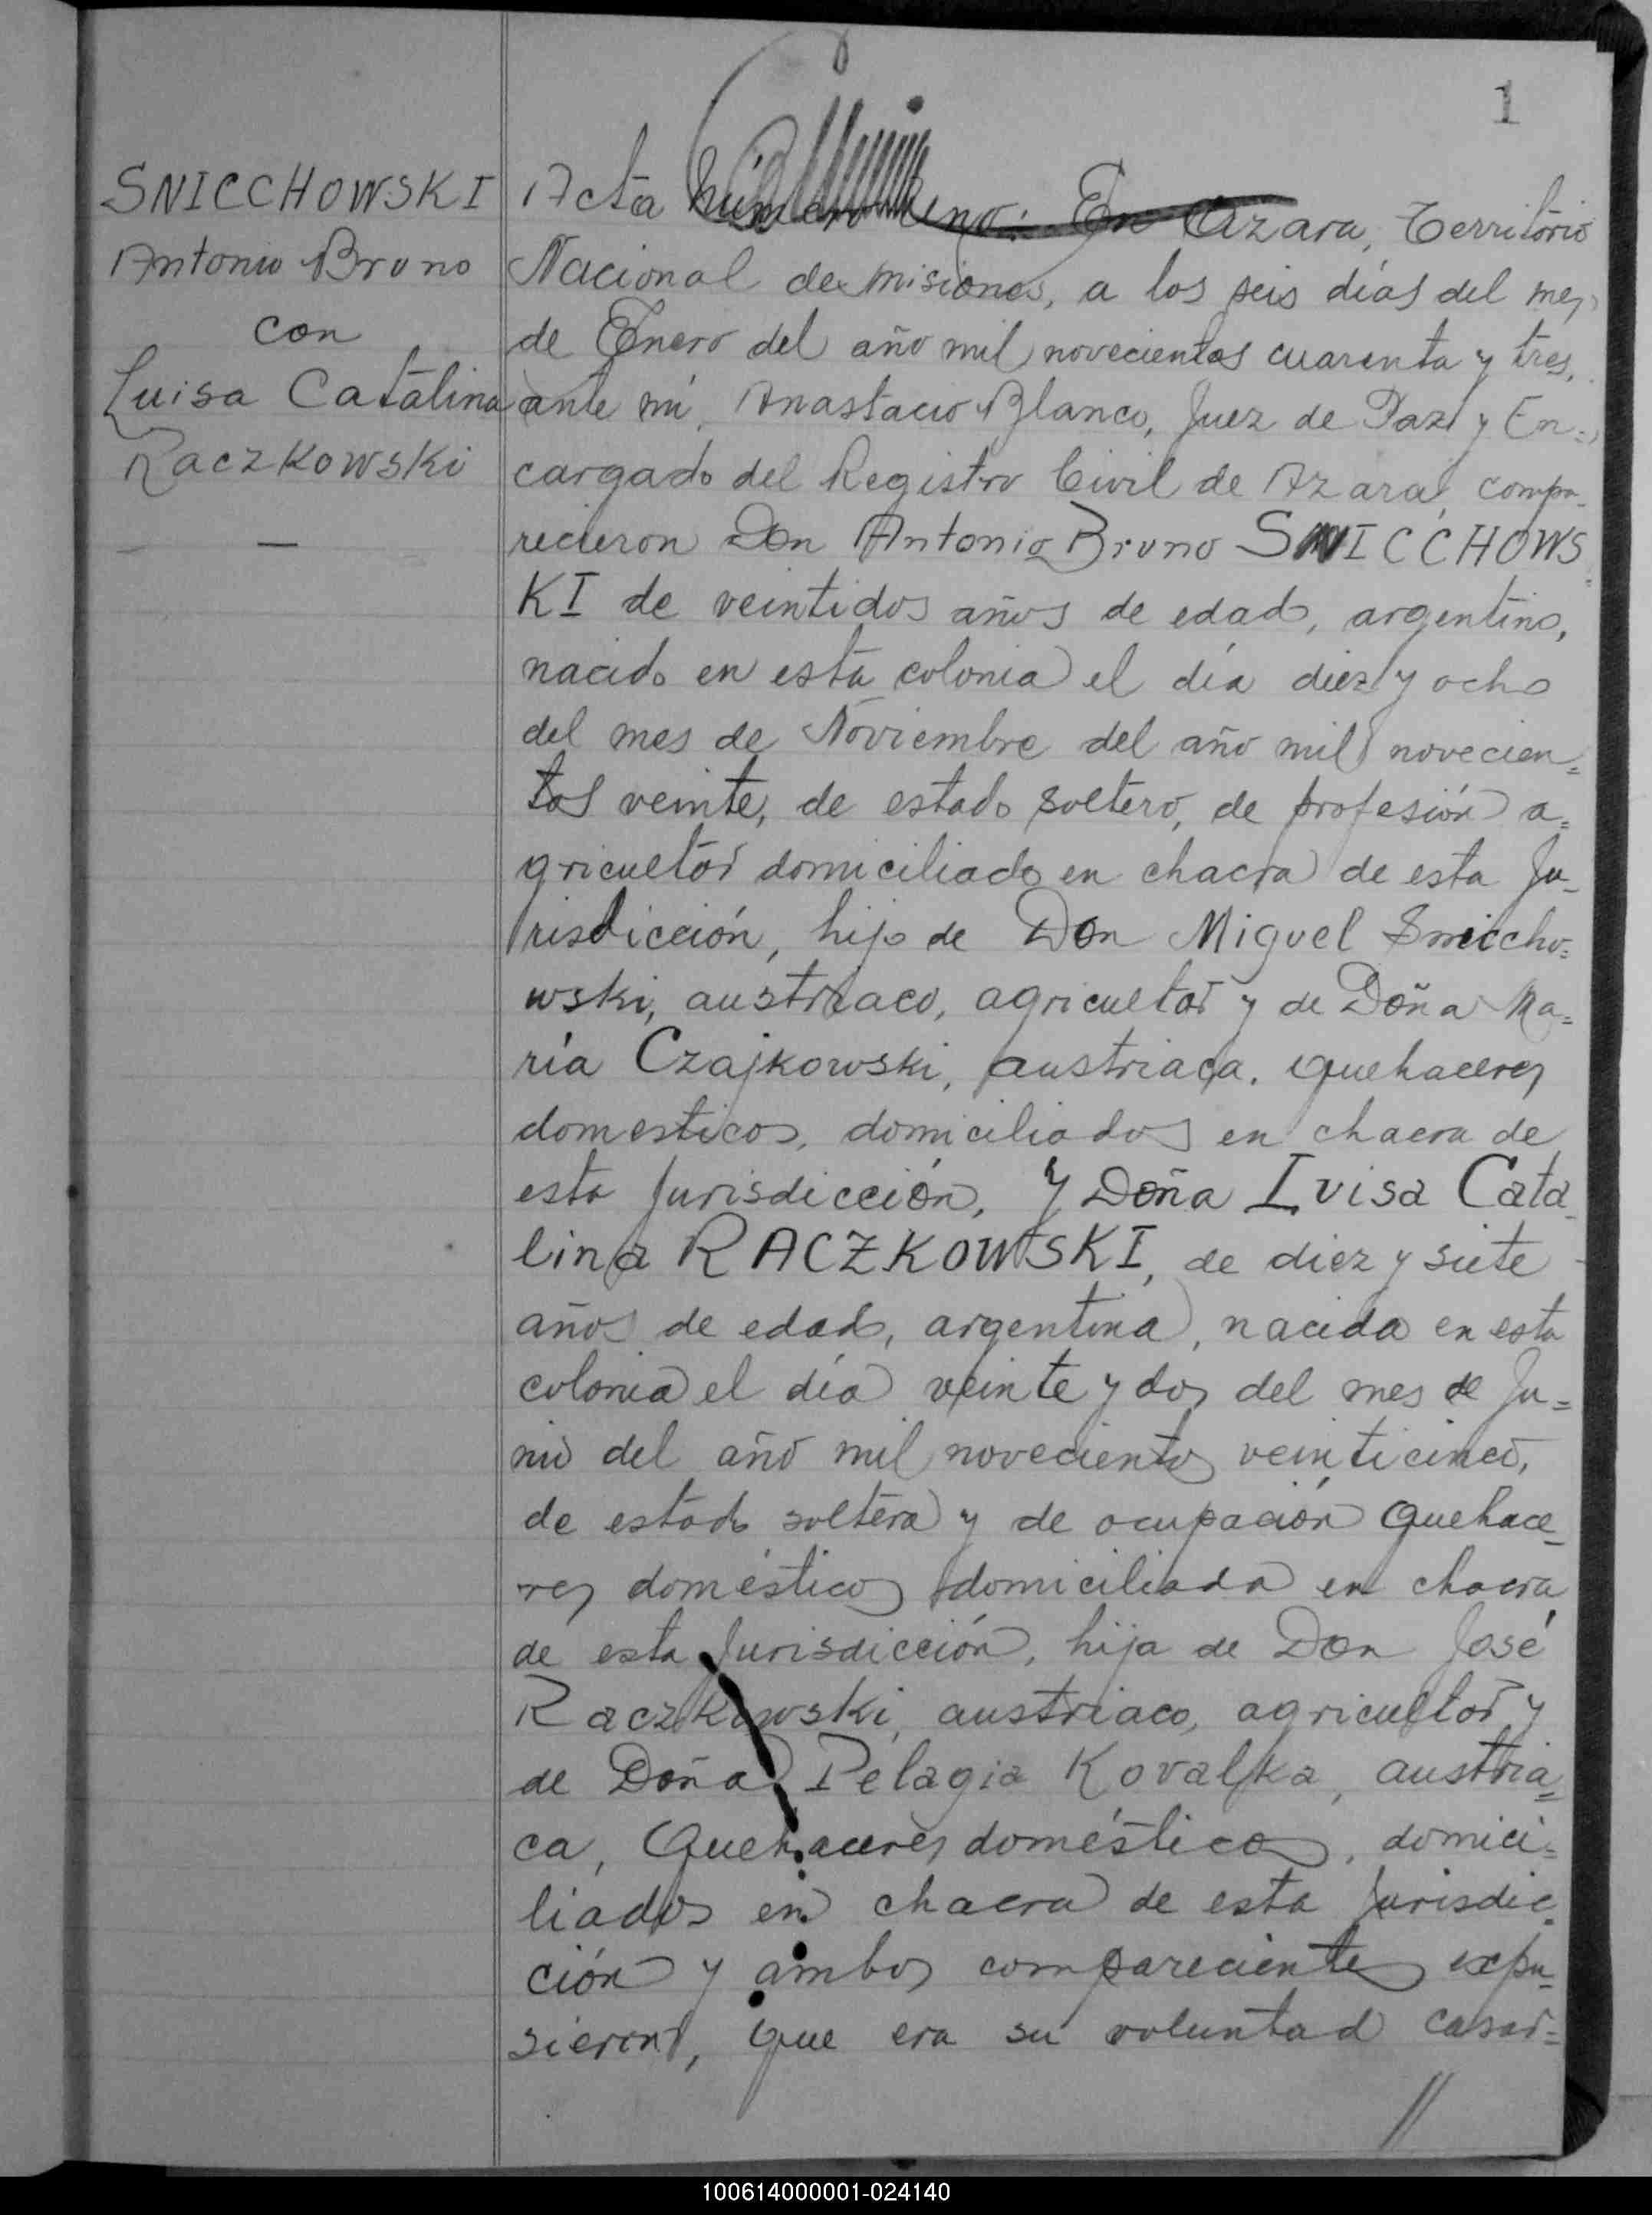 1
SNICCHOWSKI
Antonio Bruno
con
Luisa Catalina
Raczkowski
—
Acta número uno: En Azara, Territorio
Nacional de Misiones, a los seis días del mes
de Enero del año mil novecientos cuarenta y tres,
ante mí, Anastacio Blanco, Juez de Paz y En=
cargado del Registro Civil de Azara, compa-
recieron Don Antonio Bruno SNICCHOWS=
KI de veintidos años de edad, argentino,
nacido en esta colonia el día diez y ocho
del mes de Noviembre del año mil novecien=
tos veinte, de estado soltero, de profesión a=
gricultor domiciliado en chacra de esta Ju-
risdicción, hijo de Don Miguel Sniccho=
wski, austriaco, agricultor y de Doña Ma=
ría Czajkowski, austriaca, quehaceres
domesticos, domiciliados en chacra de
esta Jurisdicción, y Doña Luisa Cata-
lina RACZKOWSKI, de diez y siete
años de edad, argentina, nacida en esta
colonia el día veinte y dos del mes de Ju=
nio del año mil novecientos veinticinco,
de estado soltera y de ocupación Quehace-
res domésticos domiciliada en chacra
de esta Jurisdicción, hija de Don José
Raczkowski, austriaco, agricultor y
de Doña Pelagia Kovalska, austria=
ca, Quehaceres domésticos, domici=
liados en chacra de esta Jurisdic=
ción y ambos comparecientes expu=
sieron, que era su voluntad casar=
//
100614000001-024140